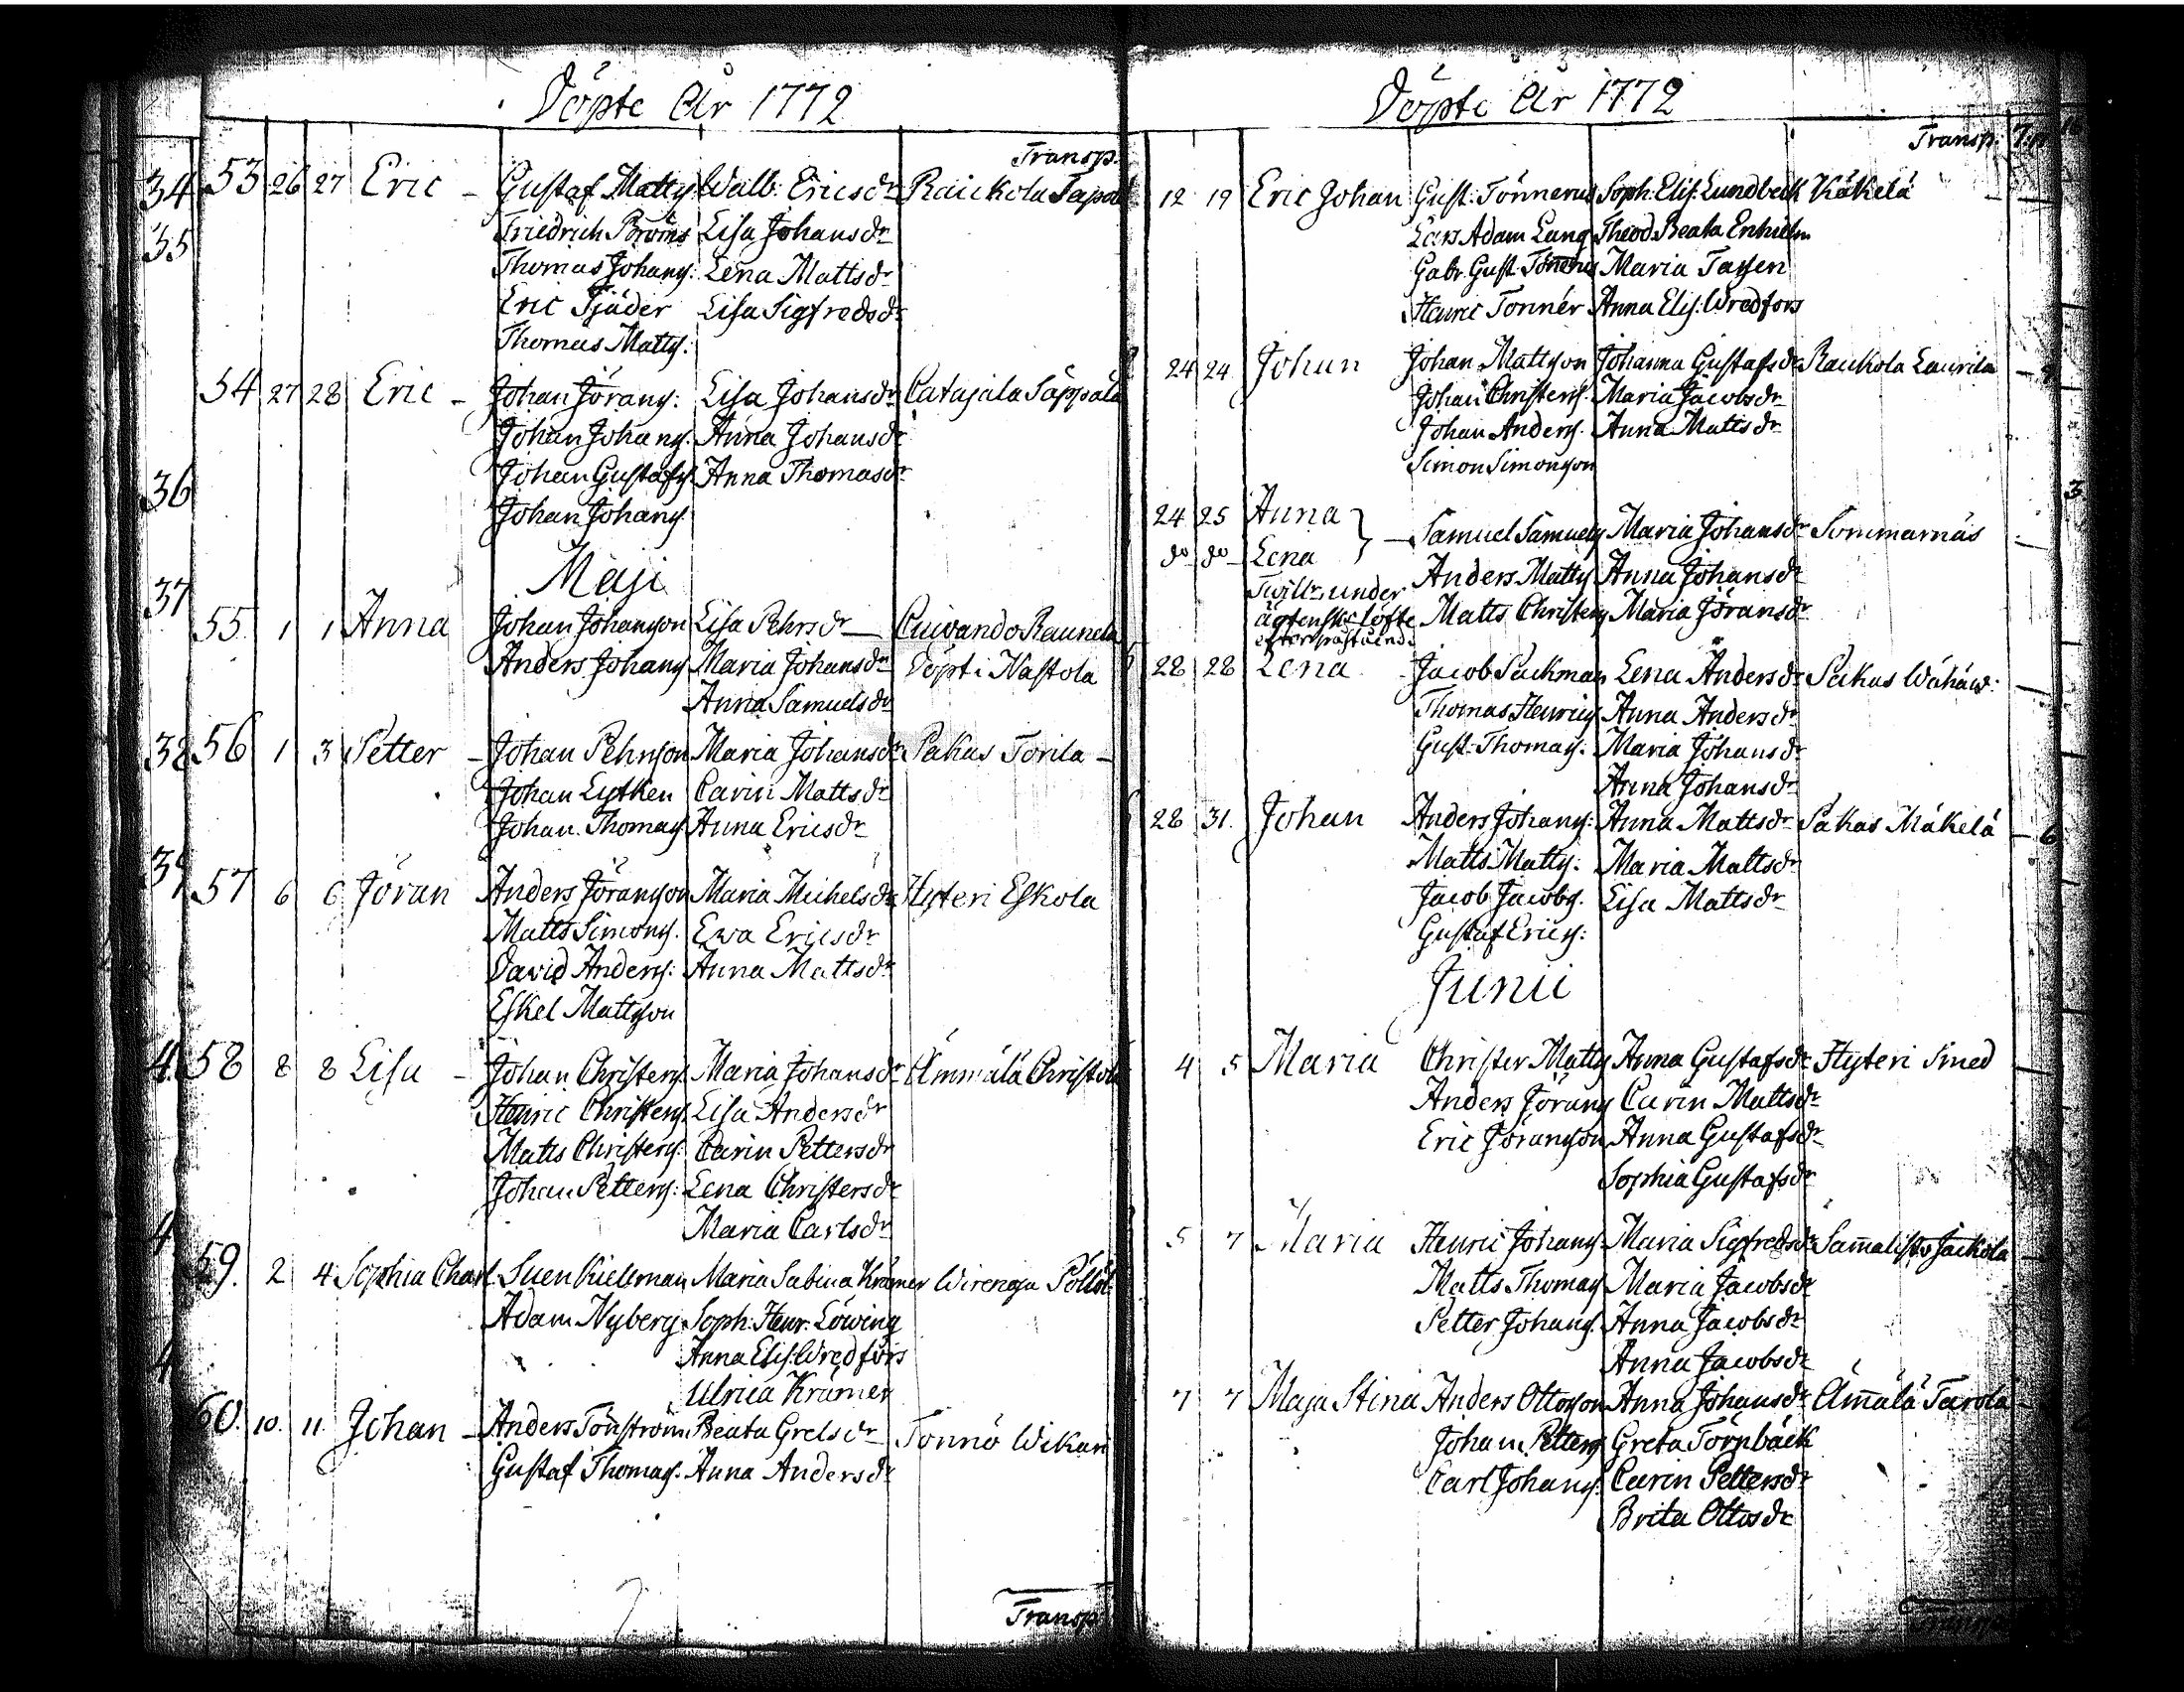 Döpte År 1772
Transp.
34 53 26 27 Eric - Gustaf Mattss: Walb: Ericsdr Raickola Tapol
35 Friedrich Broms Lisa Johansdr
Thomas Johanss: Lena Mattsdr
Eric Tjäder Lisa Sigfredsdr
Thomas Mattss:
54 27 28 Eric - Johan Jöranss: Lisa Johansdr Catajala Säppälä
Johan Johanss. Anna Johansdr
36 Johan Gustafss. Anna Thomasdr
Johan Johanss.
Maji
37 55 1 1 Anna Johan Johansson Lisa Pehrsdr Cuivando Raunela
Anders Johanss Maria Johansdr Döpt i Nastola
Anna Samuelsdr
38 56 1 3 Petter - Johan Pehrsson Maria Johansdr Pakas Torila -
Johan Lytken Carin Mattsdr
Johan Thomass. Anna Ericsdr
39 57 6 6 Jöran Anders Jöransson Maria Michelsdr Hyteri Eskola
Matts Simonss. Ewa Ericsdr
David Anderss: Anna Mattsdr
Eskel Mattsson
58 8 8 Lisa - Johan Christerss. Maria Johansdr Ämmälä Christola
Henric Christerss. Lisa Andersdr
Matts Christerss: Carin Pettersdr
Johan Petterss: Lena Christersdr
Maria Carlsdr
59. 2 4 Sophia Charl. Suen Kiellman Maria Sabina Krämer Wirenoja
Adam Nyberg Soph: Henr: Löwing
Anna Elis: Wredfors
Ulrica Krämer
60. 10. 11. Johan - Anders Tönström Beata Gretsdr Tonnö Wikari
Gustaf Thomass. Anna Andersdr
Transp.
Döpte År 1772
Transp.
12 19 Eric Johan Gust: Tönnerus Soph: Elis: Lundbeck Käkelä
Lars Adam Lang Theod. Beata Enhielm
Gabr. Gust. Tönnerus Maria Tassen
Henric Tonnér Anna Elis: Wredfors
24 24 Johan Johan Mattsson Johanna Gustafsdr Raickola Laurila
Johan Christerss. Maria Jacobsdr
Johan Anderss. Anna Mattsdr
Simon Simonsson
24 25 Anna
do do Lena } - Samuel Samuelss Maria Johansdr Sommarnäs
Anders Mattss Anna Johansdr
Twill: under
ägtensk: löfte Matts Christerss Maria Jöransdr
28 28 Lena Jacob Packman Lena Andersdr Pakas Wähäw:
Thomas Henricss Anna Andersdr
Gust: Thomass. Maria Johansdr
Anna Johansdr
28 31. Johan Anders Johanss: Anna Mattsdr Pakas Mäkelä
Matts Mattss: Maria Mattsdr
Jacob Jacobss. Lisa Mattsdr
Gustaf Ericss:
Junii
4 5 Maria Christer Mattss Anna Gustafsdr Hyteri Smed
Anders Jöranss Carin Mattsdr
Eric Jöransson Anna Gustafsdr
Sophia Gustafsdr
5 7 Maria Henric Johanss Maria Sigfredsdr Sammalisto Jackola
Matts Thomass Maria Jacobsdr
Petter Johanss. Anna Jacobsdr
Anna Jacobsdr
7 7 Maja Stina Anders Ottosson Anna Johansdr Ämälä Tarola
Johan Petterss Greta Törnbäck
Carl Johanss. Carin Pettersdr
Brita Ottosdr